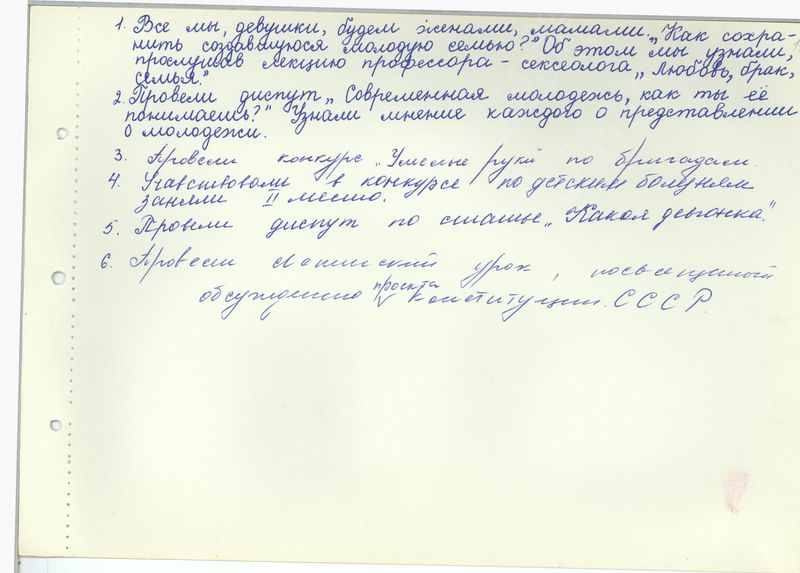 1. Все мы, девушки, будем женами, мамами. „Как сохра-
нить создавшуюся молодую семью?" Об этом мы узнали,
прослушав лекцию профессора - сексеолога „Любовь, брак,
семья."
2. Провели диспут „Современная молодежь, как ты её
понимаешь?" Узнали мнение каждого о представлении
о молодежи.
3. Провели конкурс „Умелые руки" по бригадам.
4. Участвовали в конкурсе по детским болезням
заняли II место.
5. Провели диспут по статье „Какая девчонка".
6. Провели Ленинский урок, посвещенный
обсуждению проэкта Конституции СССР.